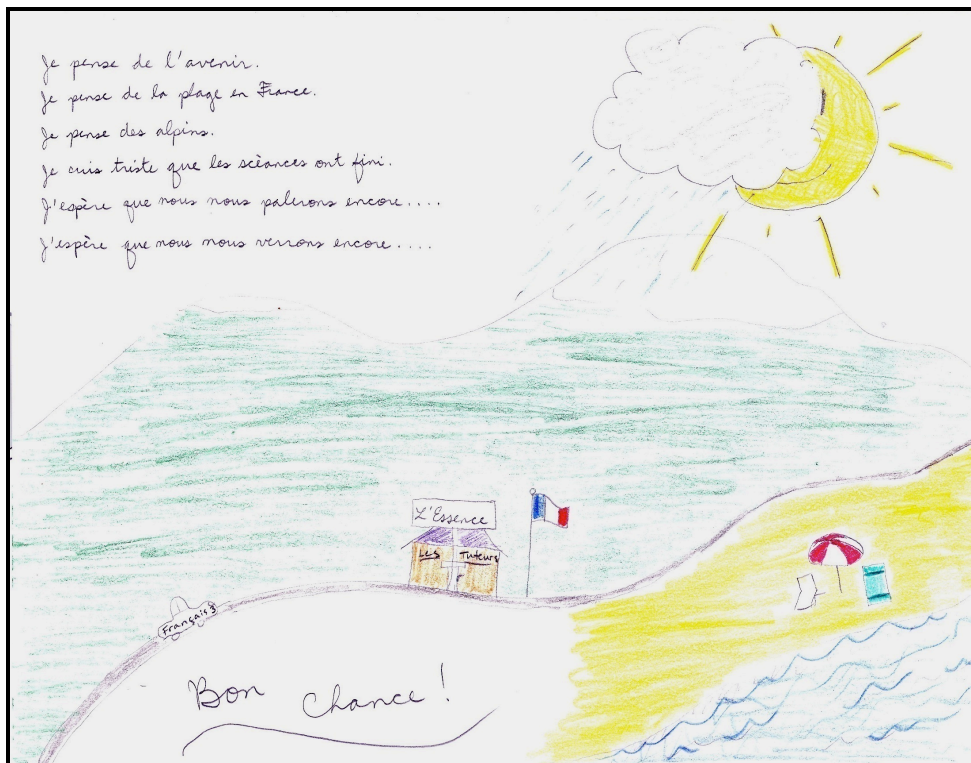 Je pense de l'avenir.
Je pense de la plage en France.
Je pense des alpins.
Je suis triste que les scèances ont fini.
J'espère que nous nous palerons encore....
J'espère que nous nous verrons encore....
L'Essence
Les Tuteurs
Français 3
Bon chance!